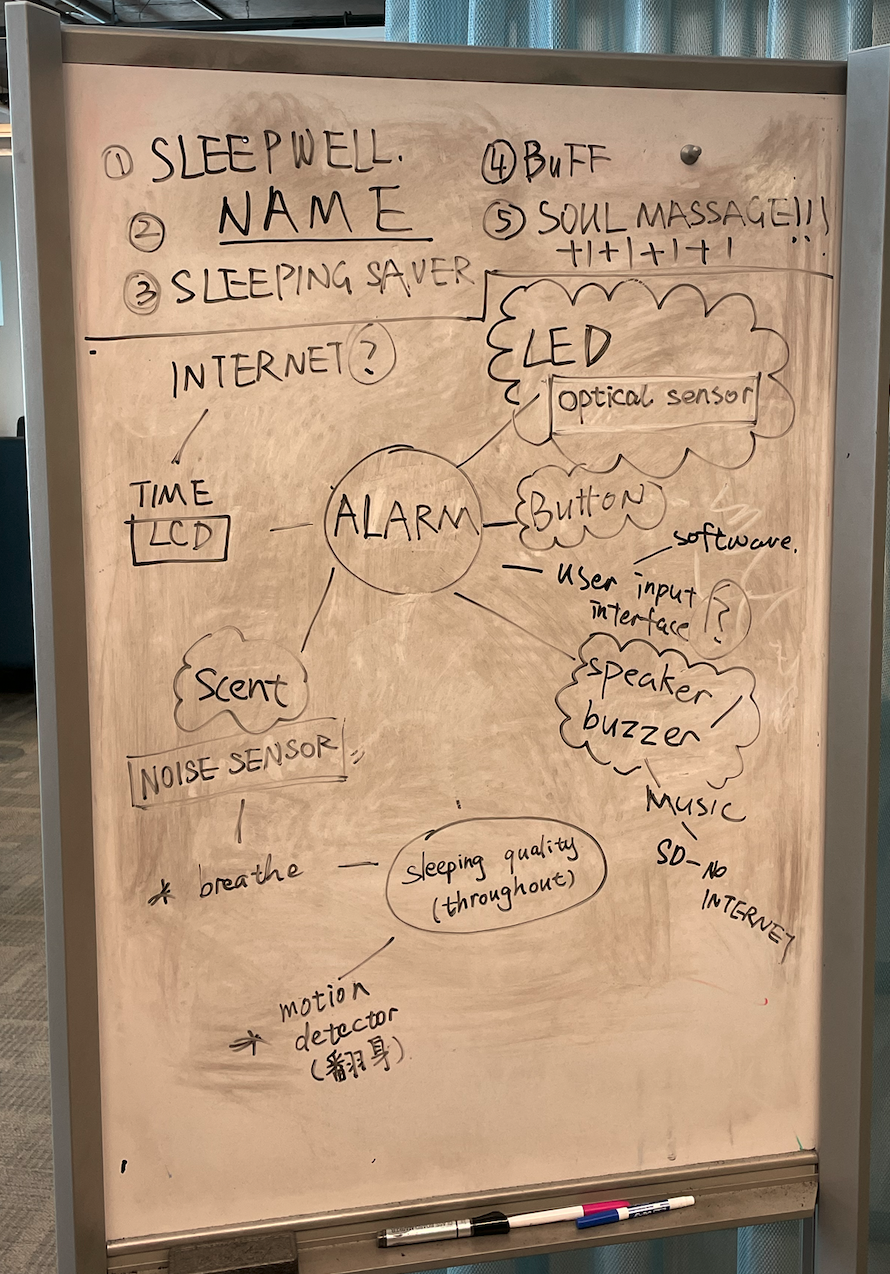 ① SLEEPWELL.
② NAME
③ SLEEPING SAVER
④ BUFF
⑤ SOUL MASSAGE!!!
+1+1+1+1
INTERNET ?
TIME
LCD
ALARM
LED
optical sensor
Button
software.
user input
interface ?
speaker
buzzer
MUSIC
SD - NO
INTERNET
Scent
NOISE SENSOR
* breathe
sleeping quality
(throughout)
motion
* detector
(翻身)